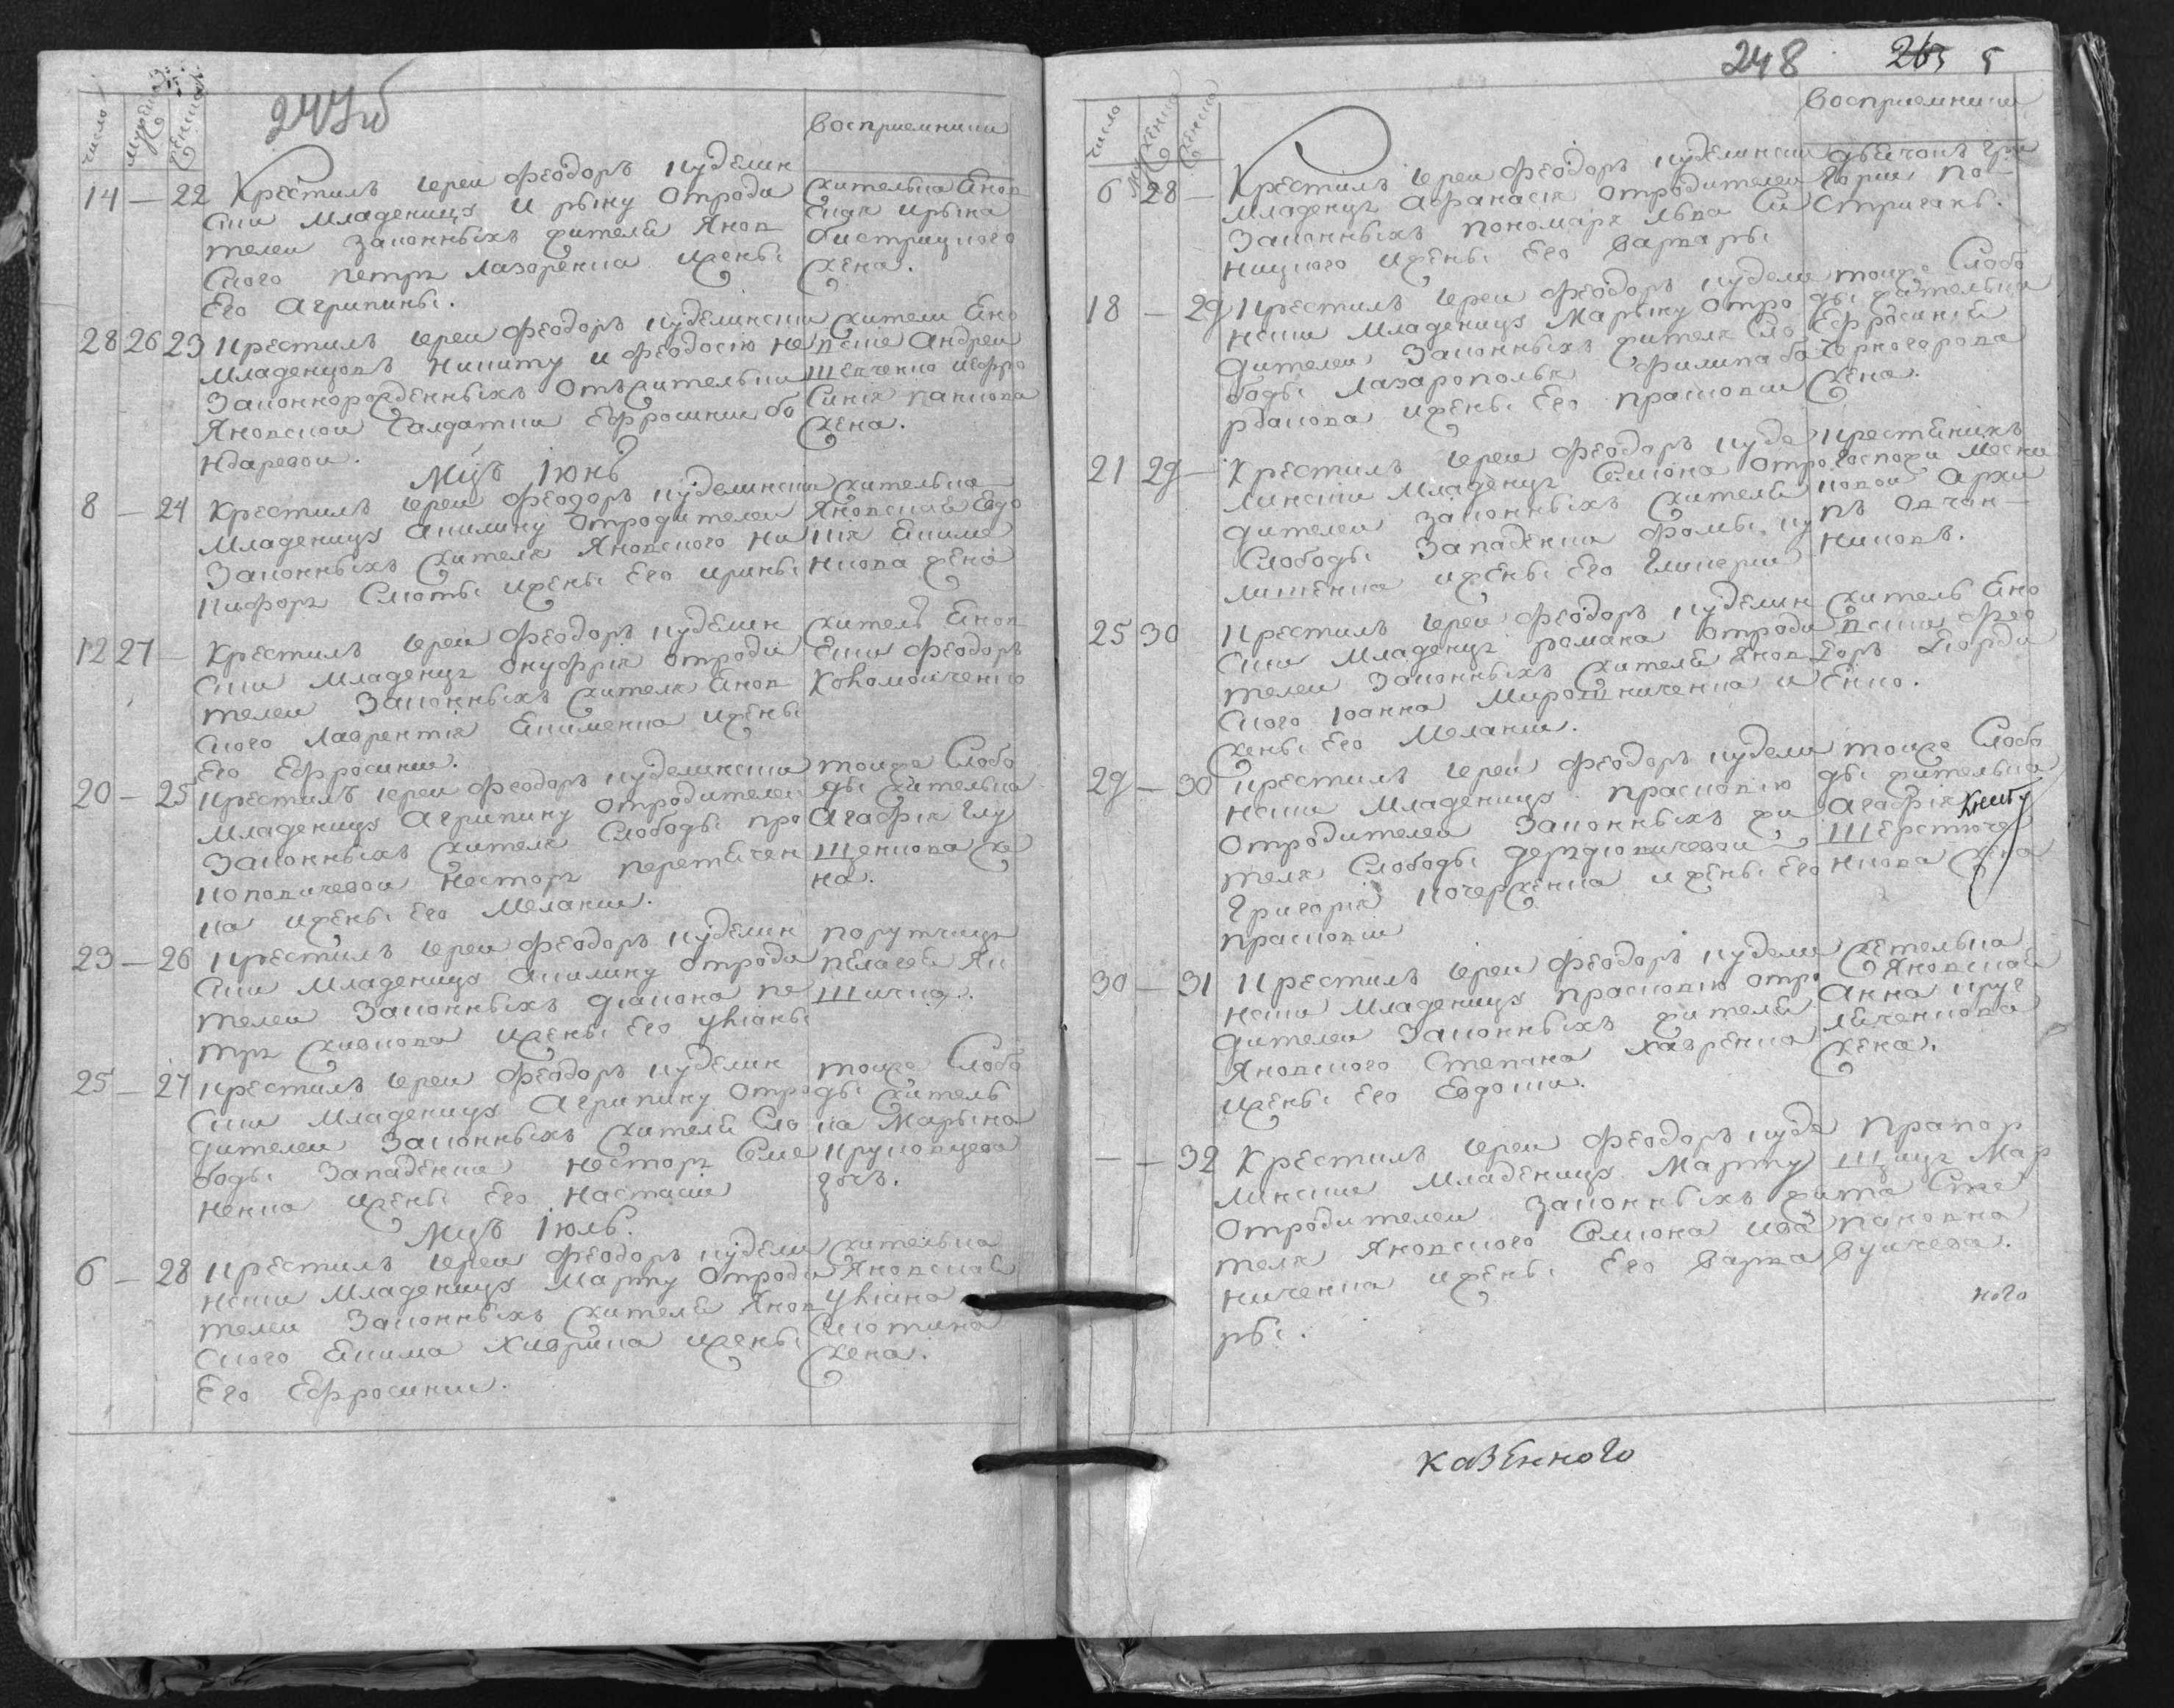 247 об
число
мужеска
женска
восприемники
14 — 22 Крестилъ иерей Феодоръ куделин
ский младеницу Ирыну отроди
телей законныхъ жителя Янов
ского Петра Лазоренка и жены
Его Агрипины.
жителька Янов
ская Ирына
быстрицкого
жена.
28 26 23 Крестилъ иерей Феодоръ куделинский
младенцовъ Никиту и Феодосию не
законнорожденныхъ отъ жительки
Яновской салдатки Ефросинии бо
ндаревой.
жители Яно
вские Андрей
Шевченко и Ефро
синия панкова
жена.
Мцъ Июнь
8 — 24 Крестилъ иерей Феодоръ куделинский
младеницу Акилину отродителей
законныхъ жителя Яновского Ни
кифора Скоты и жены Его Ирины
жителька
Яновская Евдо
кия Екиме
нкова жена
12 27 — Крестилъ иерей Феодоръ куделин
ский младенца Онуфрия отроди
телей законныхъ жителя Янов
ского Лаврентия Екименка и жены
Его Ефросинии.
житель Янов
ский Феодоръ
Коломойченко
20 — 25 Крестилъ иерей Феодоръ куделинский
младеницу Агрипину отродителей
законныхъ жителя Слободы Про
коповичевой Нестора Перетятчен
ка и жены Его Мелании.
тоиже Слобо
ды жителька
Агафия Глу
щенкова же
на.
23 — 26 Крестилъ иерей Феодоръ куделин
ский младеницу Акилину отроди
телей законныхъ диакона Пе
тра живкова и жены Его Улианы
порутчица
Пелагея Як
шична.
25 — 27 Крестилъ иерей Феодоръ куделин
ский младеницу Агрипину отро
дителей законныхъ жителя Сло
боды Западенки Нестора Семе
ненка и жены Его Настасии
тоиже Слобо
ды житель
ка Марына
Круковцева
дочь.
Мцъ Июль.
6 — 28 Крестилъ иерей Феодоръ кудели
нский младеницу Марту отроди
телей законныхъ жителя Янов
ского Екима Хиврича и жены
Его Ефросинии.
жителька
Яновская
Улиана
Скотина
жена.
248 5
число
восприемники
6 28 — Крестилъ иерей Феодоръ куделинский
младенца Афанасия отродителей
законныхъ пономаря Льва Си
ницкого и жены Его Варвары
дьячокъ Гри
горий По
стриганъ.
18 — 29 Крестилъ иерей Феодоръ кудели
нский младеницу Марыну отро
дителей законныхъ жителя Сло
боды Лазарополья Филипа бо
рдакова и жены Его Прасковии
тоиже Слобо
ды жителька
Ефросиния
Черногорова
жена.
21 29 — Крестилъ иерей Феодоръ куде
линский младенца Симиона отро
дителей законныхъ жителя
Слободы Западенки Фомы ку
лишенка и жены Его Гликерии
крестянинъ
госпожи
Архи
пъ Овчин
никовъ.
25 30 Крестилъ иерей Феодоръ куделин
ский младенца Романа отроди
телей законныхъ жителя Янов
ского Иоанна Мирошниченка и
жены Его Мелании.
житель Яно
вский Фео
доръ Бонда
енко.
29 — 30 Крестилъ иерей Феодоръ кудели
нский младеницу Прасковию
отродителей законныхъ жи
теля Слободы
Григория Кочерженка и жены Его
Прасковии
тоиже Слобо
ды жителька
Агафия
Шерстюче
нкова жена
книгу
30 — 31 Крестилъ иерей Феодоръ кудели
нский младеницу Прасковию отро
дителей законныхъ жителя
Яновского Степана Хавренка
и жены Его Евдокии.
жителька
Яновская
Анна кругл
жена.
— — 32 Крестилъ иерей Феодоръ куде
линский младеницу Марту
отродителей законныхъ жи
теля Яновского Симиона Ива
ниченка и жены Его Варва
ры.
прапор
щица Мар
та Сте
пановна
Вуичева.
ного
казенного